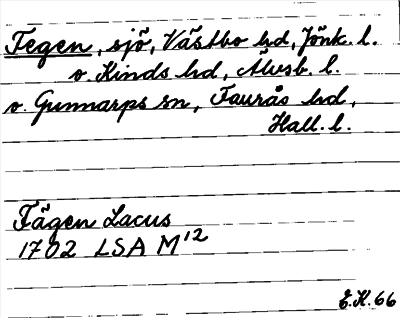 Tegen, sjö, Västbo hd, Jönk. l.
o. Kinds hd, Älvsb. l.
o. Gunnarps sn, Faurås hd,
Hall. l.
Fägen Lacus
1702 LSA M¹²
E.K. 66